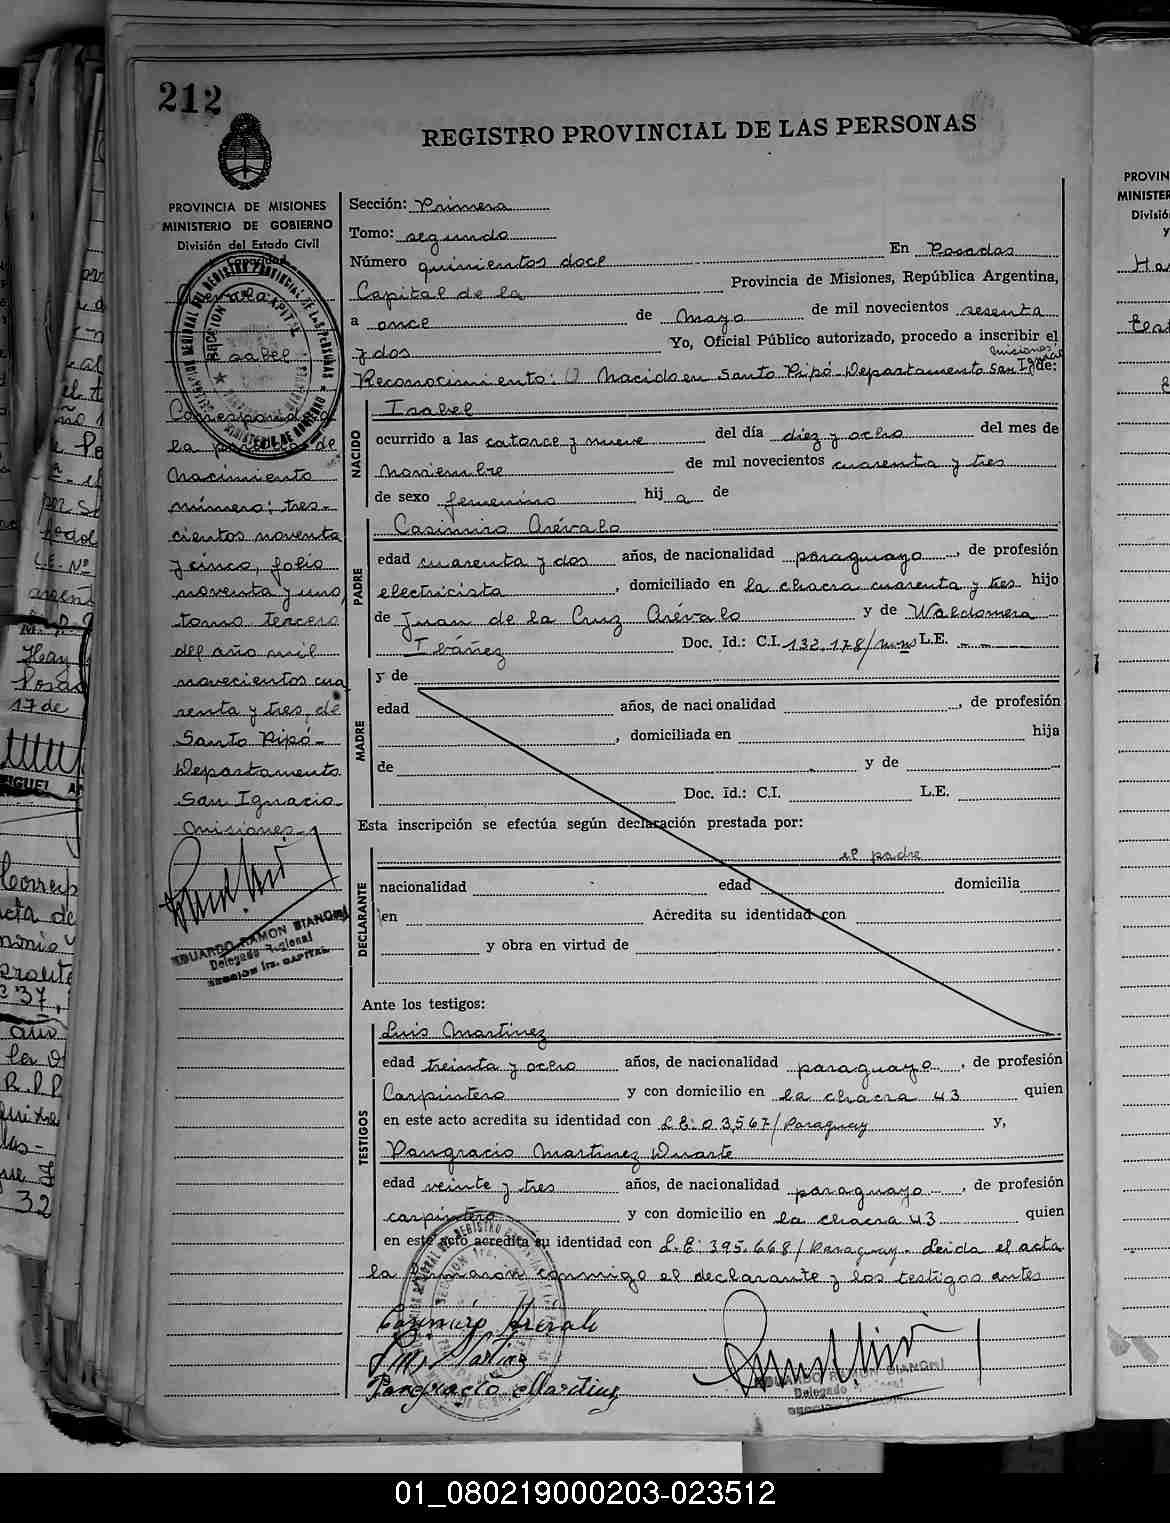 212
REGISTRO PROVINCIAL DE LAS PERSONAS
PROVINCIA DE MISIONES
MINISTERIO DE GOBIERNO
División del Estado Civil
y Capacidad
Arévalo
Isabel
Corresponde a
la partida de
nacimiento
número: tres-
cientos noventa
y cinco, folio
noventa y uno,
tomo tercero
del año mil
novecientos cua
renta y tres, de
Santo Pipó-
Departamento
San Ignacio
Misiones.-
EDUARDO RAMON BIANCHI
Delegado Regional
SECCION 1ra. CAPITAL
Sección: Primera
Tomo: segundo
Número quinientos doce En Posadas
Capital de la Provincia de Misiones, República Argentina,
a once de Mayo de mil novecientos sesenta
y dos Yo, Oficial Público autorizado, procedo a inscribir el
Misiones
Reconocimiento: Nacido en Santo Pipó-Departamento San Ignacio de:
NACIDO
Isabel
ocurrido a las catorce y nueve del día diez y ocho del mes de
noviembre de mil novecientos cuarenta y tres
de sexo femenino hij a de
PADRE
Casimiro Arévalo
edad cuarenta y dos años, de nacionalidad paraguayo, de profesión
electricista, domiciliado en la chacra cuarenta y tres hijo
de Juan de la Cruz Arévalo y de Waldomera
Ibáñez Doc. Id.: C.I. 132.178/ L.E.
MADRE
y de
edad años, de nacionalidad, de profesión
, domiciliada en hija
de y de
Doc. Id.: C.I. L.E.
Esta inscripción se efectúa según declaración prestada por:
DECLARANTE
el padre
nacionalidad edad domicilia
en Acredita su identidad con
y obra en virtud de
Ante los testigos:
TESTIGOS
Luis Martinez
edad treinta y ocho años, de nacionalidad paraguayo, de profesión
Carpintero y con domicilio en la chacra 43 quien
en este acto acredita su identidad con L.E: 03,567/Paraguay y,
Pangracio Martinez Duarte
edad veinte y tres años, de nacionalidad paraguayo, de profesión
carpintero y con domicilio en la chacra 43 quien
en este acto acredita su identidad con L.E: 395.668/Paraguay. Leida el acta
la firmaron conmigo el declarante y los testigos antes
Casimiro Arevalo
Pangracio Martinez
EDUARDO RAMON BIANCHI
Delegado Regional
01_080219000203-023512